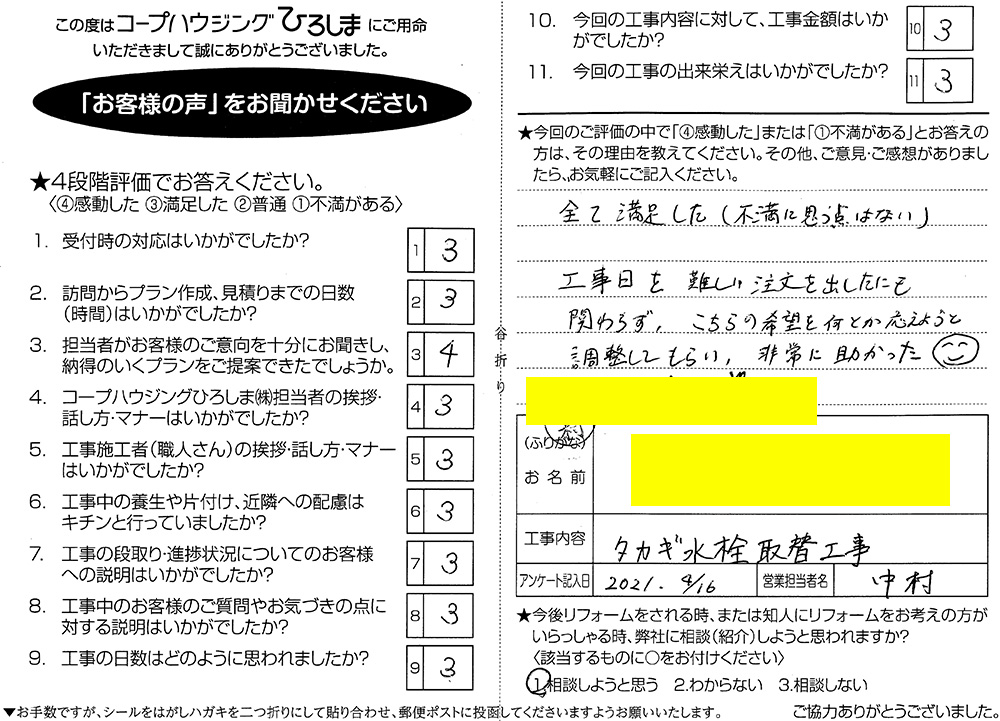 この度はコープハウジングひろしまにご用命
いただきまして誠にありがとうございました。
「お客様の声」をお聞かせください
★4段階評価でお答えください。
〈④感動した ③満足した ②普通 ①不満がある〉
1. 受付時の対応はいかがでしたか?
1 3
2. 訪問からプラン作成、見積りまでの日数
(時間)はいかがでしたか?
2 3
3. 担当者がお客様のご意向を十分にお聞きし、
納得のいくプランをご提案できたでしょうか。
3 4
4. コープハウジングひろしま㈱担当者の挨拶・
話し方・マナーはいかがでしたか?
4 3
5. 工事施工者(職人さん)の挨拶・話し方・マナー
はいかがでしたか?
5 3
6. 工事中の養生や片付け、近隣への配慮は
キチンと行っていましたか?
6 3
7. 工事の段取り・進捗状況についてのお客様
への説明はいかがでしたか?
7 3
8. 工事中のお客様のご質問やお気づきの点に
対する説明はいかがでしたか?
8 3
9. 工事の日数はどのように思われましたか?
9 3
谷折り
10. 今回の工事内容に対して、工事金額はいか
がでしたか?
10 3
11. 今回の工事の出来栄えはいかがでしたか?
11 3
★今回のご評価の中で「④感動した」または「①不満がある」とお答えの
方は、その理由を教えてください。その他、ご意見・ご感想がありまし
たら、お気軽にご記入ください。
全て満足した(不満に思う点はない)
工事日を難しい注文を出したにも
関わらず、こちらの希望を何とか応えようと
調整してもらい、非常に助かった
(ふりがな)
お名前
工事内容 タカギ水栓取替工事
アンケート記入日 2021. 9/16 営業担当者名 中村
★今後リフォームをされる時、または知人にリフォームをお考えの方が
いらっしゃる時、弊社に相談(紹介)しようと思われますか?
〈該当するものに○をお付けください〉
1.相談しようと思う 2.わからない 3.相談しない
▼お手数ですが、シールをはがしハガキを二つ折りにして貼り合わせ、郵便ポストに投函してくださいますようお願いいたします。
ご協力ありがとうございました。